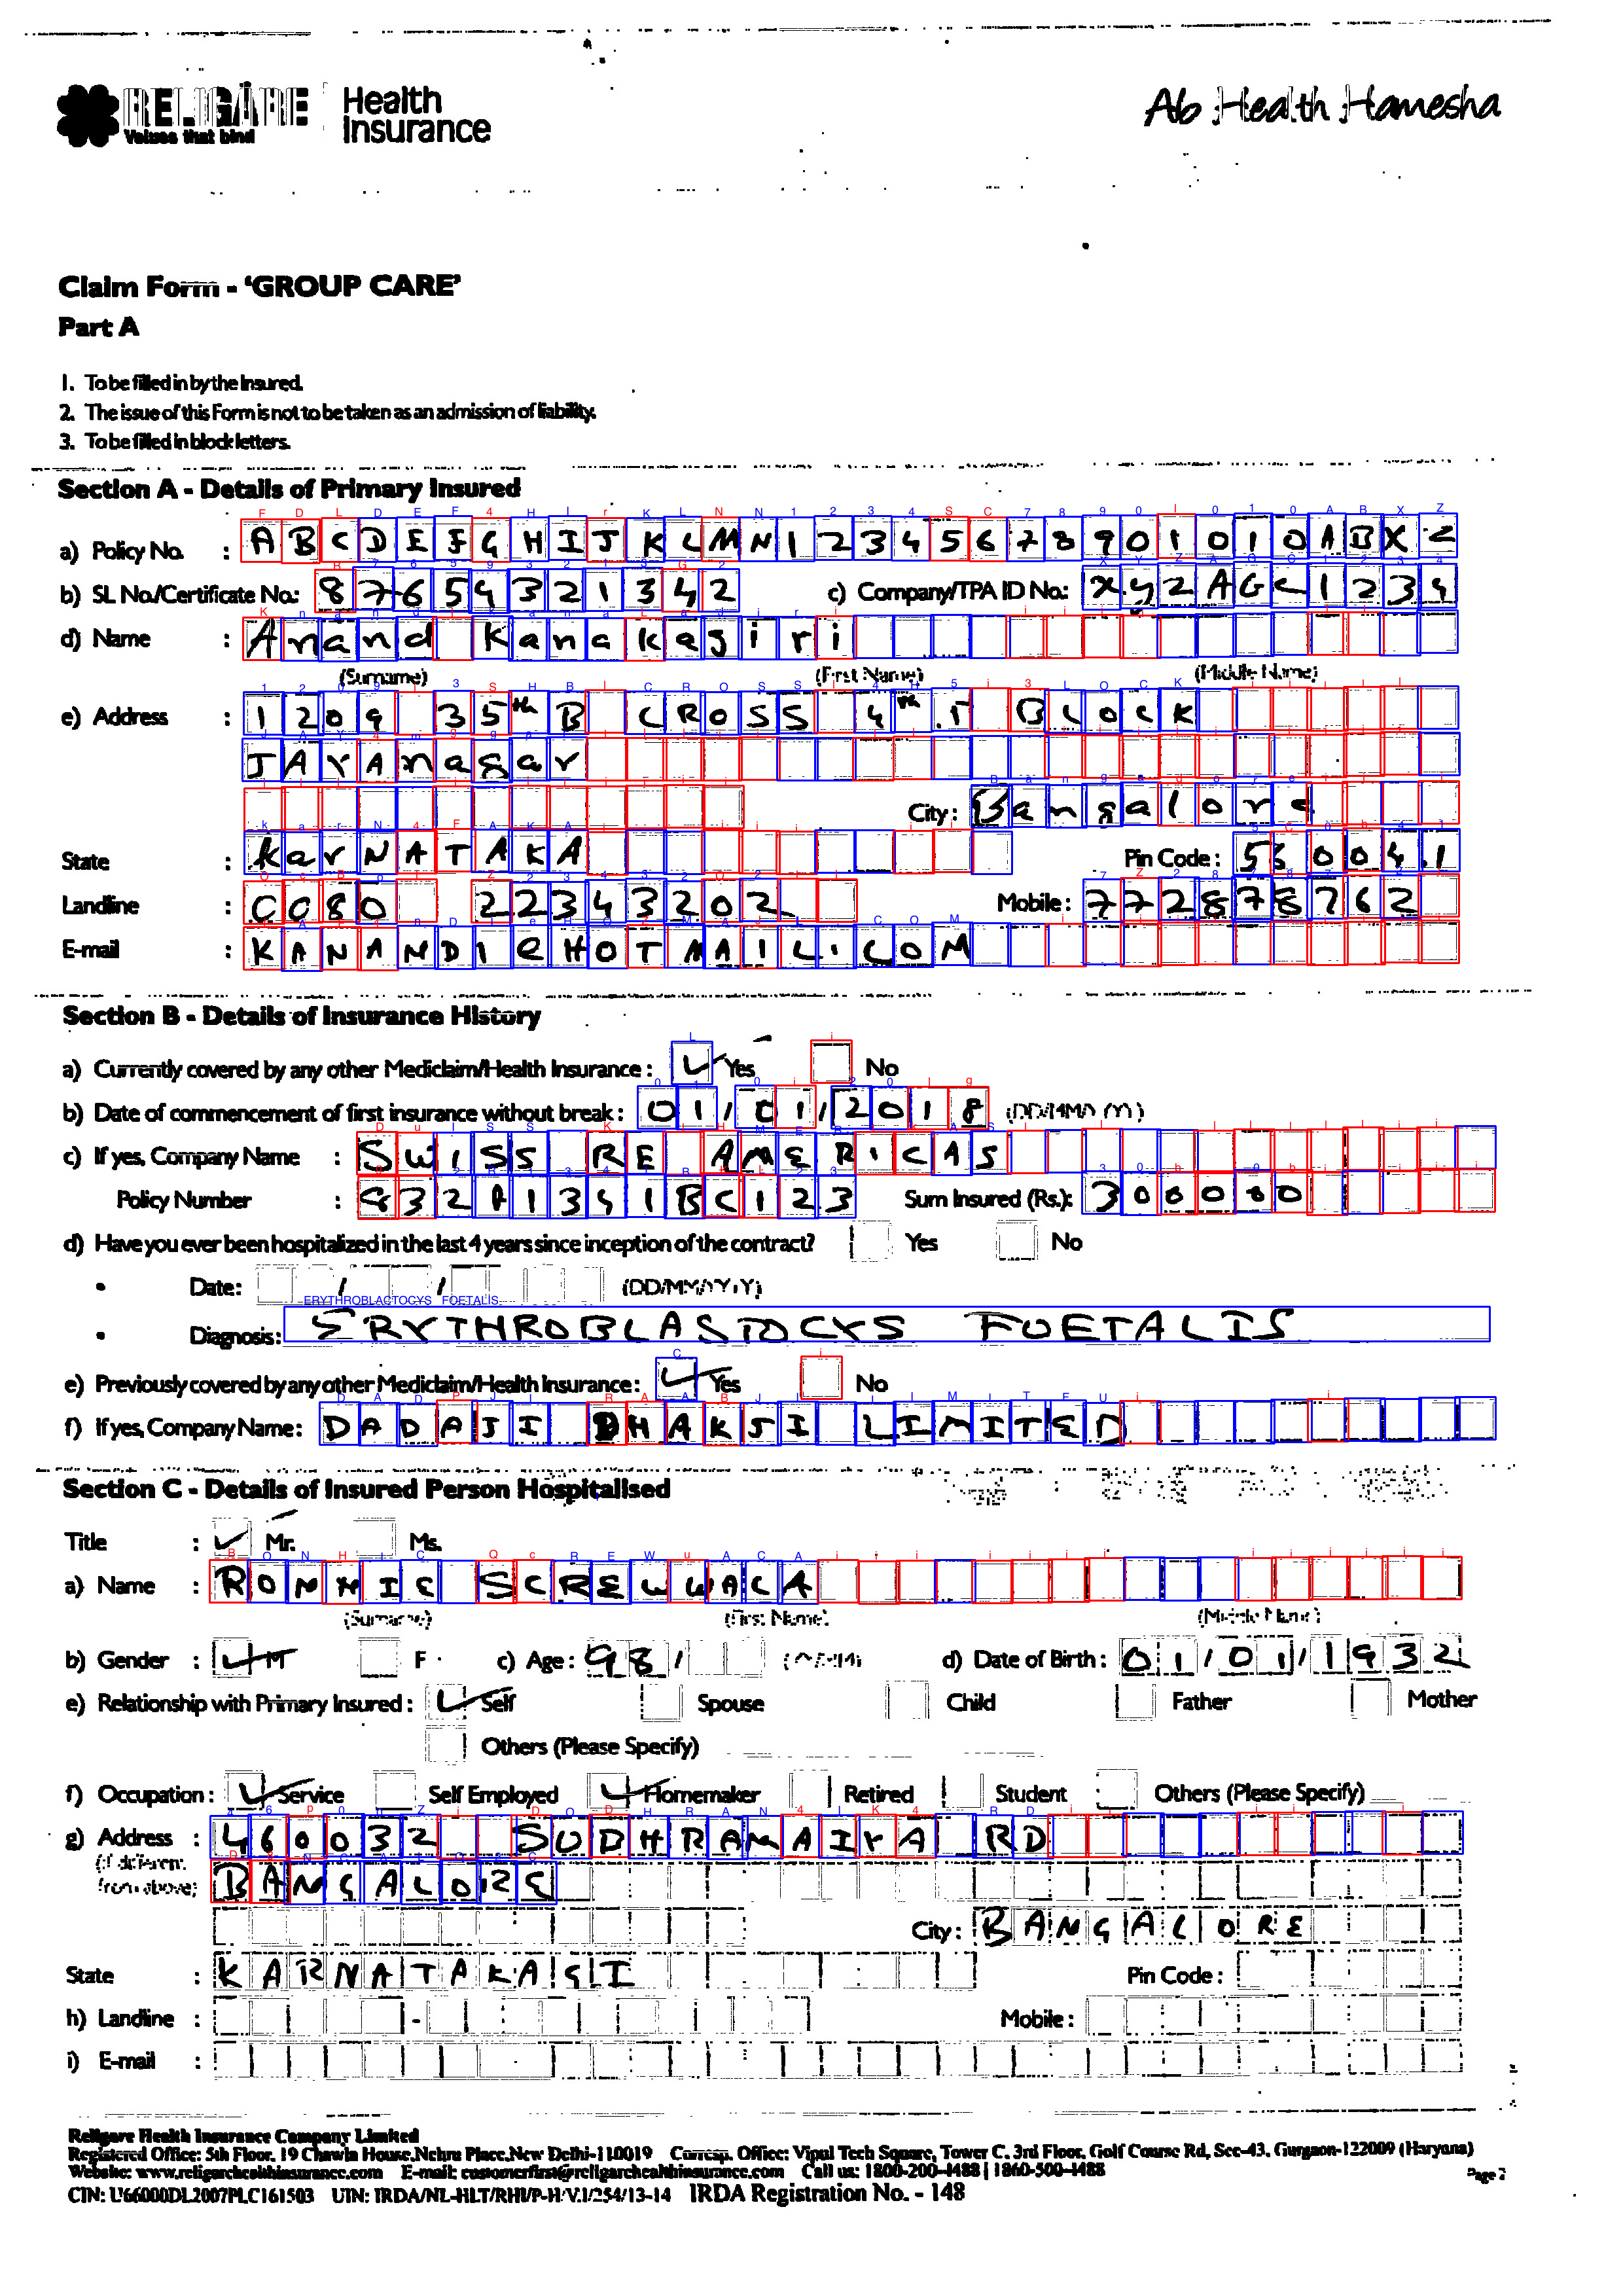 RELIGARE Health Insurance
Values that bind
Ab Health Hamesha
Claim Form - ‘GROUP CARE’
Part A
1. To be filled in by the Insured.
2. The issue of this Form is not to be taken as an admission of liability.
3. To be filled in block letters.
Section A - Details of Primary Insured
a) Policy No. : ABCDEFGHIJKLMN1234567890101 0ABXZ
b) SL No./Certificate No.: 87659321342 c) Company/TPA ID No.: XYZAGC1234
d) Name : Anand Kanakagiri
(Surname) (First Name) (Middle Name)
e) Address : 1209 35th B CROSS 4th T BLOCK
JAYAnagar
City : Bangalore
State : KarNATAKA Pin Code : 560041
Landline : 0080 22343202 Mobile : 7728787762
E-mail : KANANDI@HOTMAIL.COM
Section B - Details of Insurance History
a) Currently covered by any other Mediclaim/Health Insurance : Yes No
b) Date of commencement of first insurance without break : 01/01/2018
c) If yes, Company Name : SWISS RE AMERICAS
Policy Number : 932A1391BC123 Sum Insured (Rs.): 300000
d) Have you ever been hospitalized in the last 4 years since inception of the contract? Yes No
Date: / / (DD/MM/YY)
ERYTHROBLACTOCYS FOETALIS
Diagnosis: ERYTHROBLASTOCYS FOETALIS
e) Previously covered by any other Mediclaim/Health Insurance : Yes No
f) If yes, Company Name : DADAJI DHAKJI LIMITED
Section C - Details of Insured Person Hospitalised
Title : Mr. Ms.
a) Name : RONNIE SCREWWACA
(Surname) (First Name) (Middle Name)
b) Gender : M F c) Age : 98/ d) Date of Birth : 01/01/1932
e) Relationship with Primary Insured : Self Spouse Child Father Mother
Others (Please Specify)
f) Occupation : Service Self Employed Homemaker Retired Student Others (Please Specify)
g) Address : 460032 SUDHRAMAIYA RD
(if different from above) BANGALORE
City : BANGALORE
State : KARNATAKA GI Pin Code :
h) Landline : - Mobile :
i) E-mail :
Religare Health Insurance Company Limited
Registered Office: 5th Floor, 19 Chawla House, Nehru Place, New Delhi-110019 Corresp. Office: Vipul Tech Square, Tower C, 3rd Floor, Golf Course Rd, Sec-43, Gurgaon-122009 (Haryana)
Website: www.religarehealthinsurance.com E-mail: customerfirst@religarehealthinsurance.com Call us: 1800-200-4488 | 1860-500-4488
CIN: U66000DL2007PLC161503 UIN: IRDA/NL-HLT/RHI/P-H/V.I/254/13-14 IRDA Registration No. - 148
Page 2